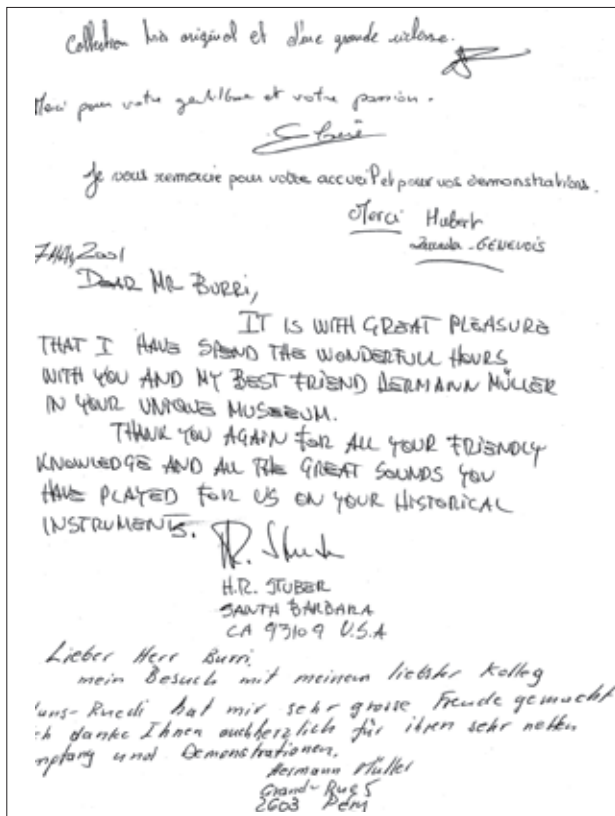 Collection très original et d'une grande richesse.
Merci pour votre gentillesse et votre passion.
Je vous remercie pour votre accueil et pour vos demonstrations.
Merci Hubert
GENEVOIS
7 2001
DEAR MR BURRI,
IT IS WITH GREAT PLEASURE
THAT I HAVE SPEND THE WONDERFULL HOURS
WITH YOU AND MY BEST FRIEND HERMANN MÜLLER
IN YOUR UNIQUE MUSEEUM.
THANK YOU AGAIN FOR ALL YOUR FRIENDLY
KNOWLEDGE AND ALL THE GREAT SOUNDS YOU
HAVE PLAYED FOR US ON YOUR HISTORICAL
INSTRUMENTS.
H.R. STUBER
SANTA BARBARA
CA 93109 U.S.A
Lieber Herr Burri,
mein Besuch mit meinem liebster Kolleg
Hans-Ruedi hat mir sehr grosse Freude gemacht
ch danke Ihnen auch herzlich für ihren sehr netten
mpfang und Demonstrationen.
Hermann Müller
Grand-Rue 5
2603 Péry